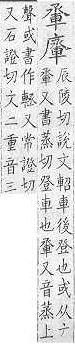 辰陵切說文軺車後登也或从
又書蒸切登車也又音蒸上
聲或書作又常證切
又石證切文二重音三